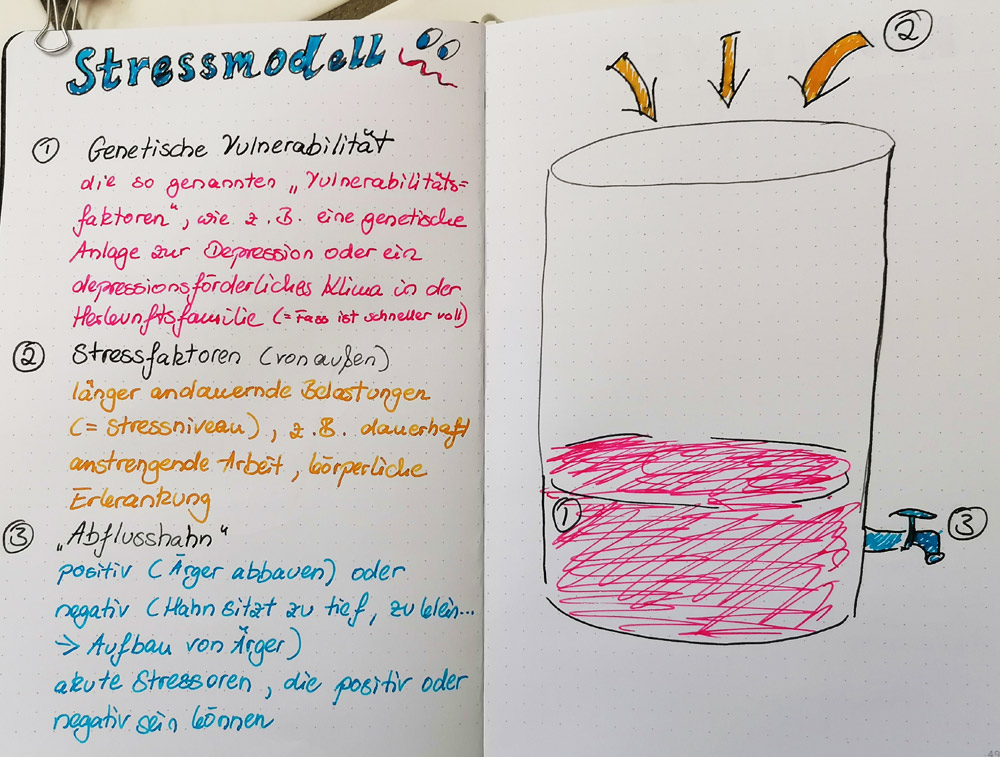 Stressmodell
① Genetische Vulnerabilität
die so genannten „Vulnerabilitäts=
faktoren“, wie z.B. eine genetische
Anlage zur Depression oder ein
depressionsförderliches Klima in der
Herkunftsfamilie (= Fass ist schneller voll)
② Stressfaktoren (von außen)
länger andauernde Belastungen
(= Stressniveau), z.B. dauerhaft
anstrengende Arbeit, körperliche
Erkrankung
③ „Abflusshahn“
positiv (Ärger abbauen) oder
negativ (Hahn sitzt zu tief, zu klein...
→ Aufbau von Ärger)
akute Stressoren, die positiv oder
negativ sein können
②
①
③
49